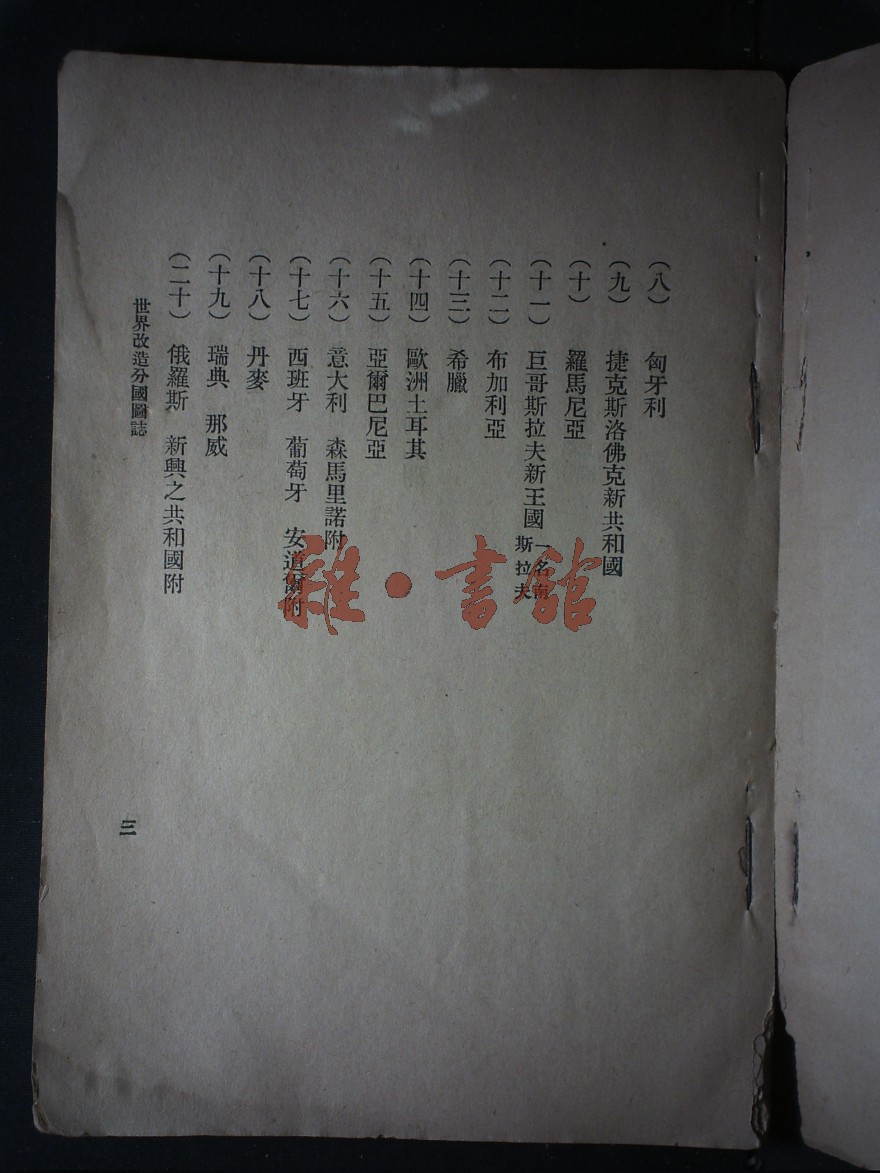 （八）　匈牙利
（九）　捷克斯洛佛克新共和國
（十）　羅馬尼亞
（十一）　巨哥斯拉夫新王國一名南斯拉夫
（十二）　布加利亞
（十三）　希臘
（十四）　歐洲土耳其
（十五）　亞爾巴尼亞
（十六）　意大利　森馬里諾附
（十七）　西班牙　葡萄牙　安道爾附
（十八）　丹麥
（十九）　瑞典　那威
（二十）　俄羅斯　新興之共和國附
世界改造分國圖誌
三
雜·書館